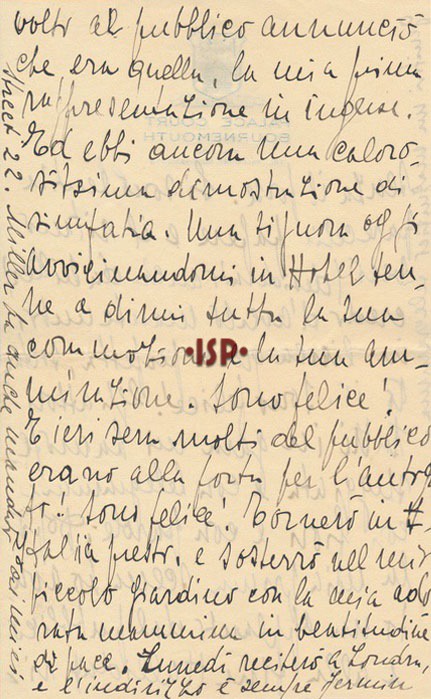 volto al pubblico annunciò
che era quella, la mia prima
rappresentazione in inglese.
Ed ebbi ancora una caloro-
sissima dimostrazione di
simpatia. Una signora oggi
avvicinandomi in Hotel ven-
ne a dirmi tutta la sua
commozione e la sua am-
mirazione. Sono felice!
E ieri sera molti del pubblico
erano alla porta per l'autogra
fo! Sono felice! Tornerò in
Italia presto. e sosterrò nel mio
piccolo giardino con la mia ado
rata mammina in beatitudine
di pace. Lunedì reciterò a Londra,
e l'indirizzo è sempre Jermin
Street 22. Miller fa anche
PALACE COURT
BOURNEMOUTH
·ISP·